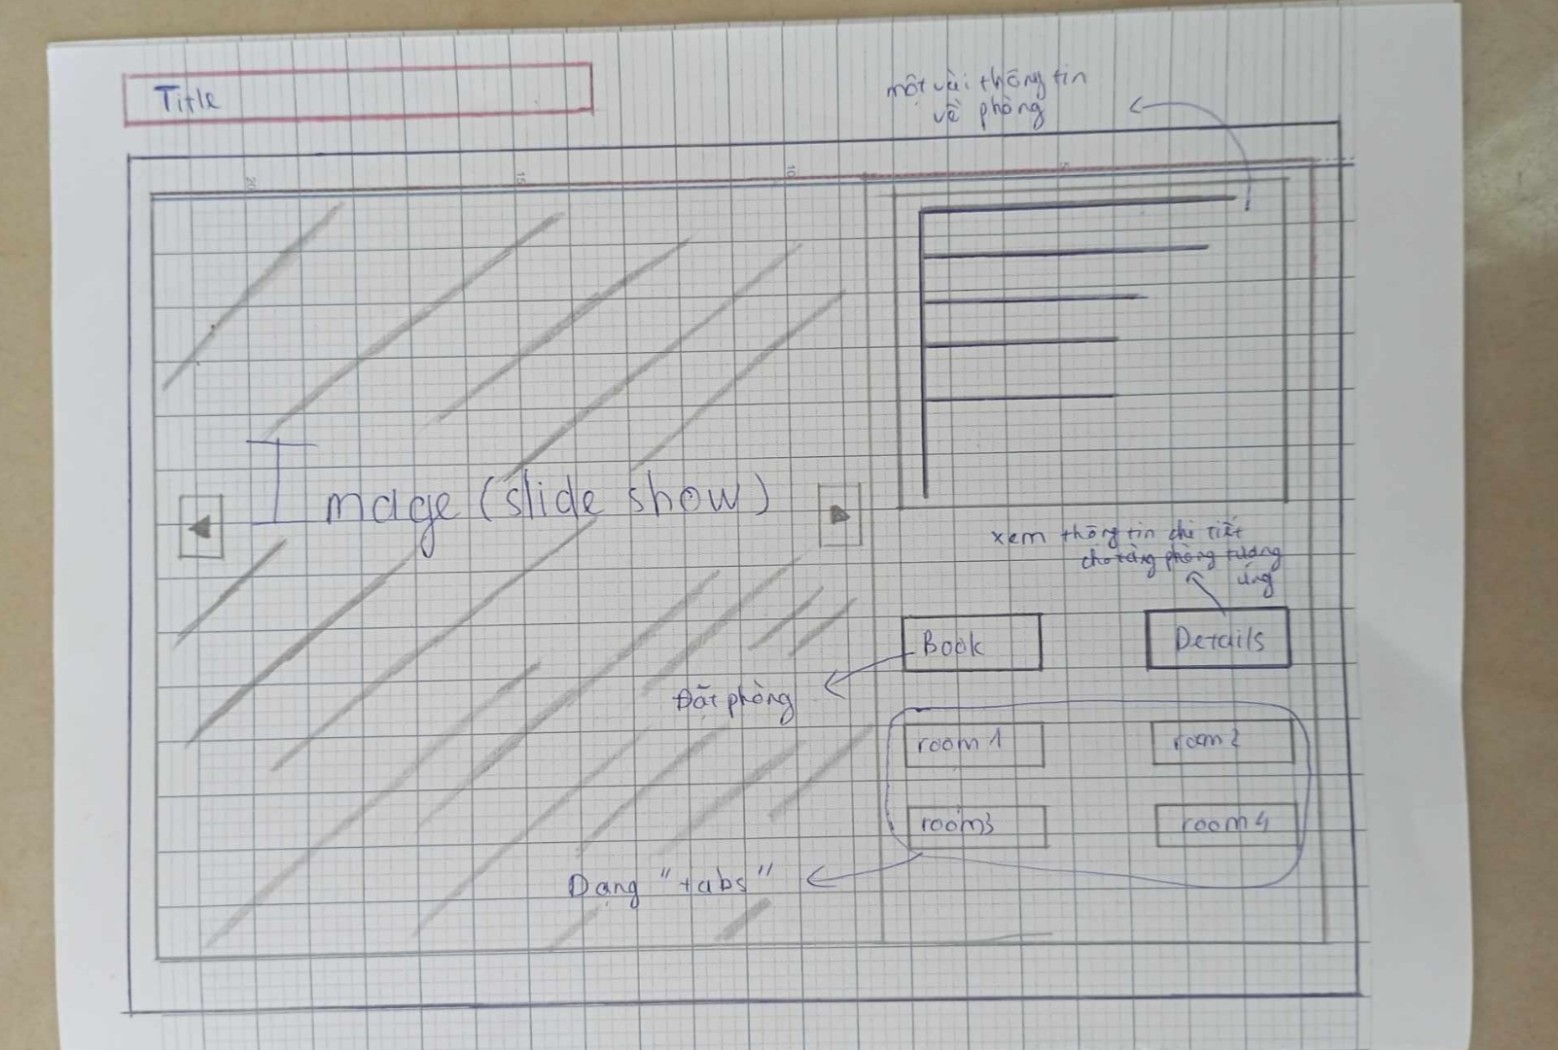 Title
một vài thông tin
về phòng
Image (slide show)
xem thông tin chi tiết
cho từng phòng tương
ứng
Book
Details
Đặt phòng
room 1
room 2
room 3
room 4
Dạng "tabs"